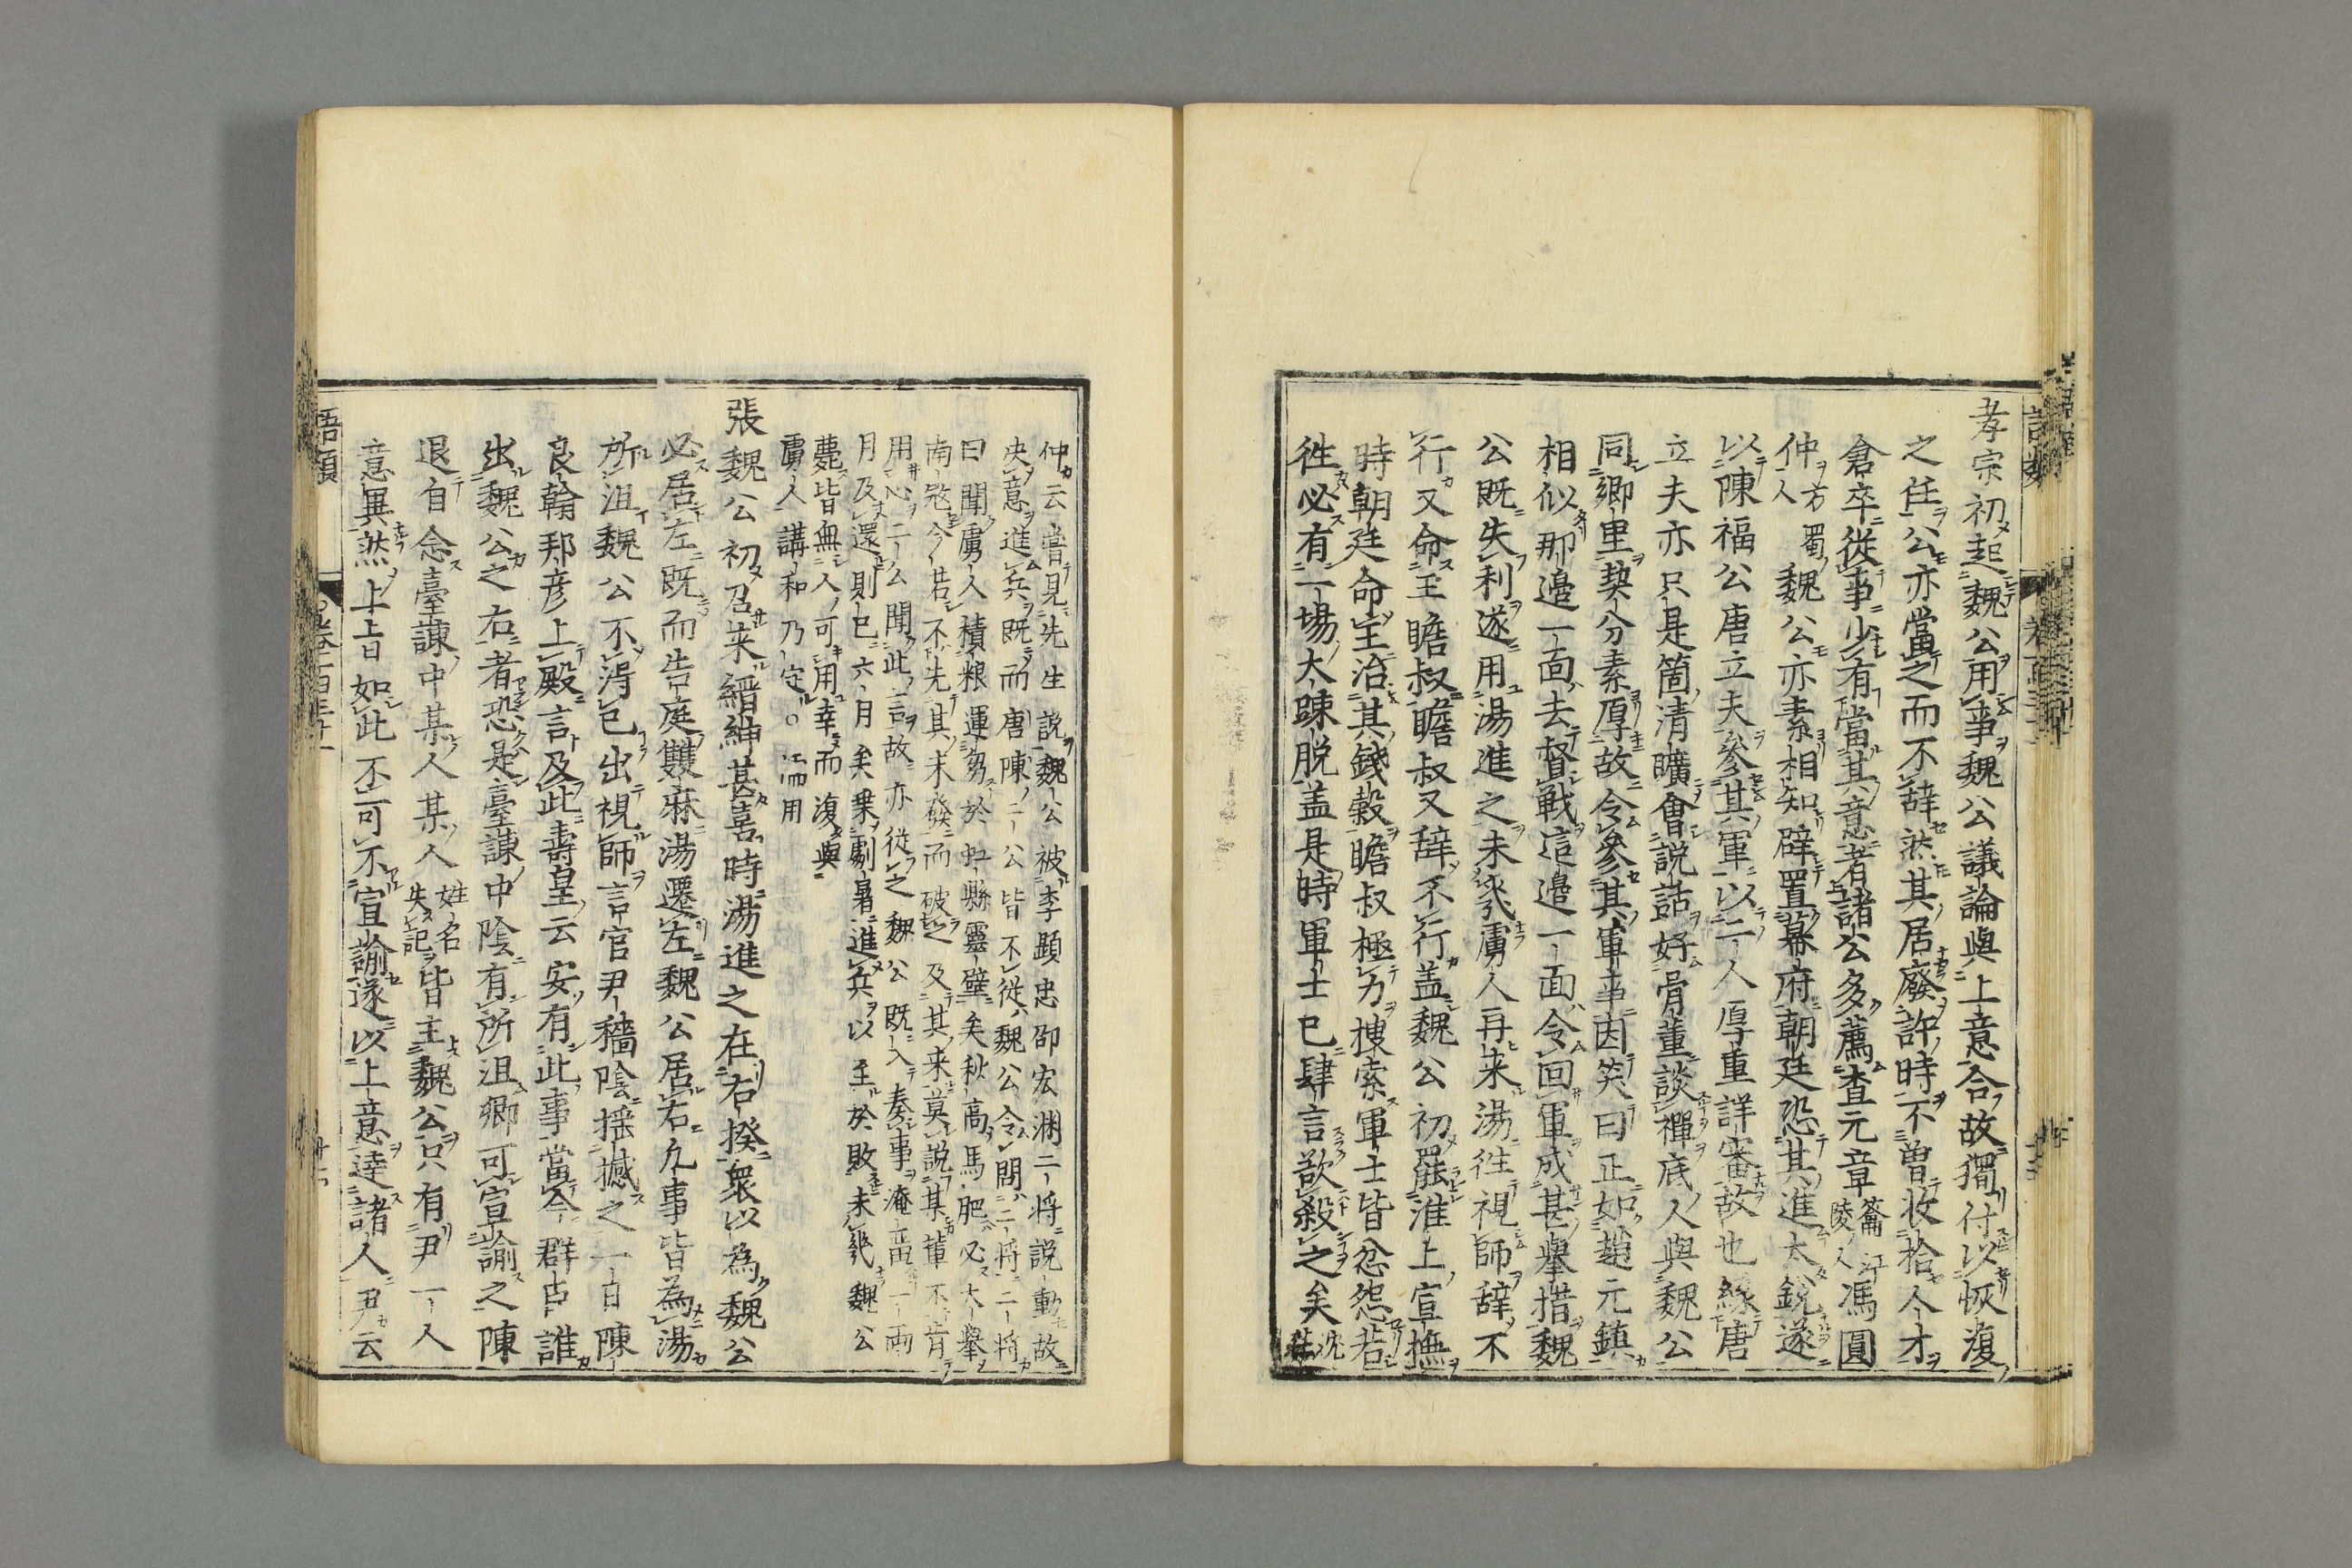 孝宗初起魏公用事魏公議論與上意合故獨付以恢復
之任公亦當之而不辞然其居廢許時不曽收拾人才
倉卒従事少有當其意者諸公多薦查元章
馮圓
仲
魏公亦素相知辟置幕府朝廷恐其進太銳遂
以陳福公唐立夫參其軍以二人厚重詳審故也緣唐
立夫亦只是箇清曠會說話好骨董談禪底人與魏公
同鄉里契分素厚故令參其軍事因笑曰正如趙元鎮
相似那邉一面去督戦這邉一面令回軍成甚舉措魏
公既失利遂用湯進之未幾虜人再来湯徃視師辞不
行又命王瞻叔瞻叔又辞不行盖魏公初罷淮上宣撫
時朝廷命王治其錢穀瞻叔極力搜索軍士皆忿怨若
徃必有一場大踈脫盖是時軍士已肆言欲殺之矣
仲云嘗見先生説魏公被李顕忠邵宏渊二将説動故
决意進兵既而唐陳二公皆不從魏公令問二将二将
曰聞虜人積粮運芻於虹縣靈壁矣秋高馬肥必大舉
南冦今若不先其未發而破之及其来莫説某軰不肯
用心二公聞此言故亦從之魏公既入奏事淹畄一兩
月及還則已六月矣乗劇暑進兵以至於敗未幾魏公
薨皆無人可用幸而復與
虜人講和乃定○
張魏公初召来縉紳甚喜時湯進之在右揆衆以為魏公
必居左既而告庭雙麻湯遷左魏公居右凡事皆為湯
所沮魏公不淂已出視師言官尹穡陰揺撼之一日陳
良翰邦彦上殿言及此壽皇云安有此事當今群臣誰
出魏公之右者恐是臺諫中隂有所沮卿可宣諭之陳
退自念臺諫中某人某人姓名失記皆主魏公只有尹一人
意異然上旨如此不可不宣諭遂以上意達諸人尹云
語類